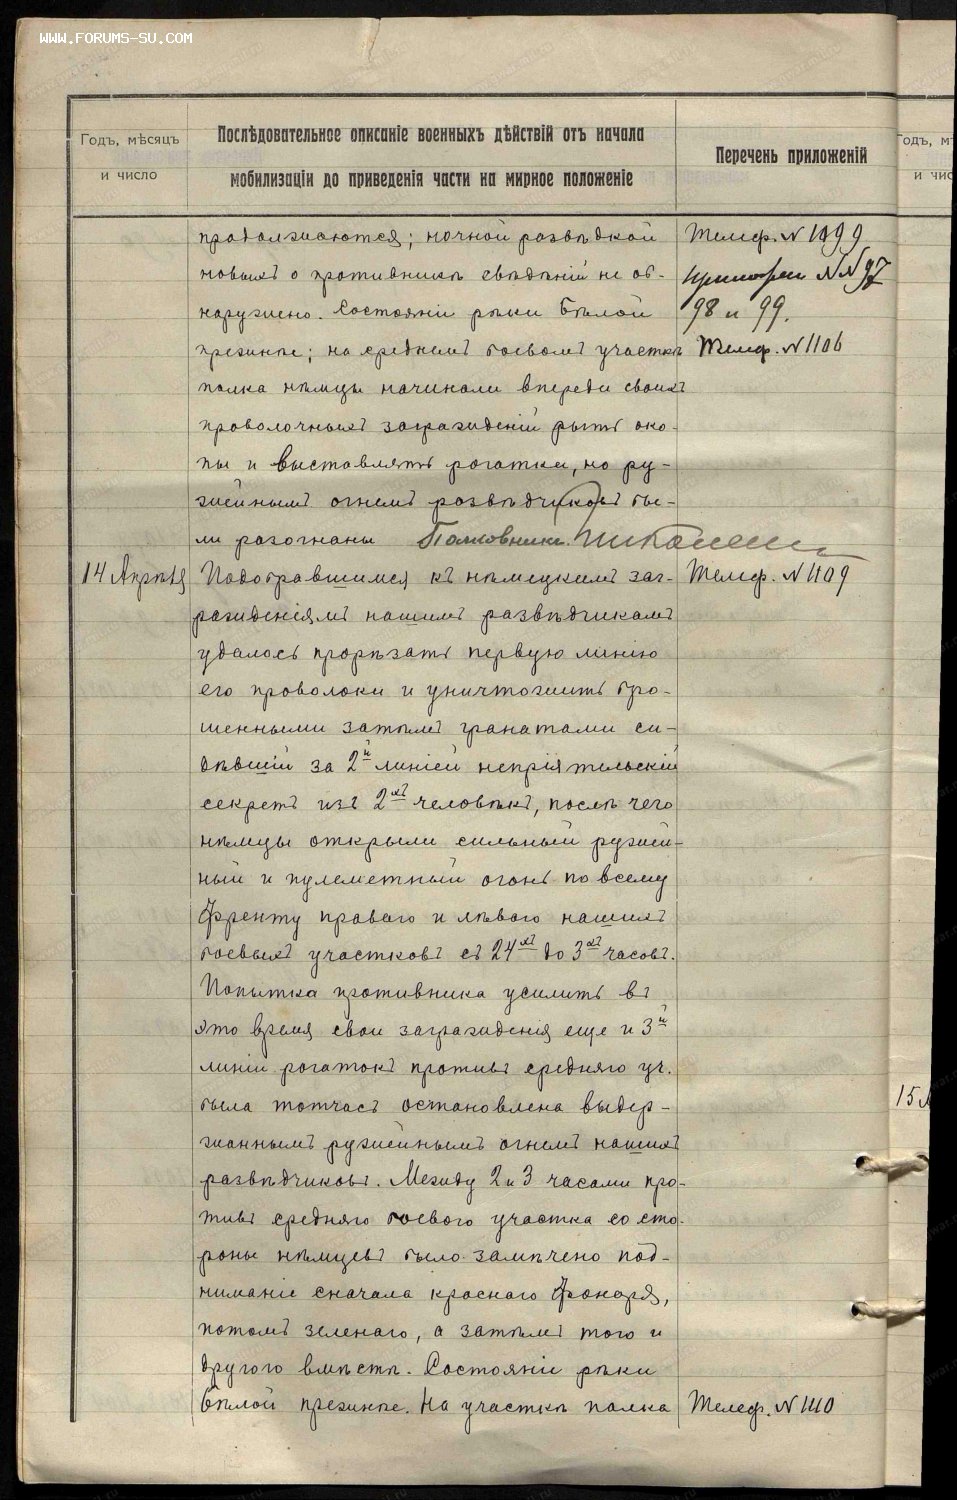 WWW.FORUMS-SU.COM
Годъ, мѣсяцъ
и число
Послѣдовательное описаніе военныхъ дѣйствій отъ начала
мобилизаціи до приведенія части на мирное положеніе
Перечень приложеній
продолжаются; ночной развѣдкой
новыхъ о противникѣ свѣдѣній не об-
наружено. Состояніе рѣки Бѣлой
прежнее; на среднемъ боевомъ участкѣ
полка нѣмцы начинали впереди своихъ
проволочныхъ загражденій рыть око-
пы и выставлять рогатки, но ру-
жейнымъ огнемъ развѣдчиковъ бы-
ли разогнаны Полковникъ
Телеф. N 1099
NN 97
98 и 99.
Телеф. N 1106
14 Апрѣля
Подобравшимся къ нѣмецкимъ заг-
ражденіямъ нашимъ развѣдчикамъ
удалось прорѣзать первую линію
его проволоки и уничтожить бро-
шенными затѣмъ гранатами си-
дѣвшій за 2й линіей непріятельскій
секретъ изъ 2хъ человѣкъ, послѣ чего
нѣмцы открыли сильный ружей-
ный и пулеметный огонь по всему
фронту праваго и лѣваго нашихъ
боевыхъ участковъ съ 24хъ до 3хъ часовъ.
Попытка противника усилить въ
это время свои загражденія еще и 3й
линіи рогатокъ противъ средняго уч.
была тотчасъ остановлена выдер-
жаннымъ ружейнымъ огнемъ нашихъ
развѣдчиковъ. Между 2 и 3 часами про-
тивъ средняго боевого участка со сто-
роны нѣмцевъ было замѣчено под-
ниманіе сначала краснаго фонаря,
потомъ зеленаго, а затѣмъ того и
другого вмѣстѣ. Состояніе рѣки
Бѣлой прежнее. На участкѣ полка
Телеф. N 1109
Телеф. N 1110
Годъ, мѣ
и чис
15 А